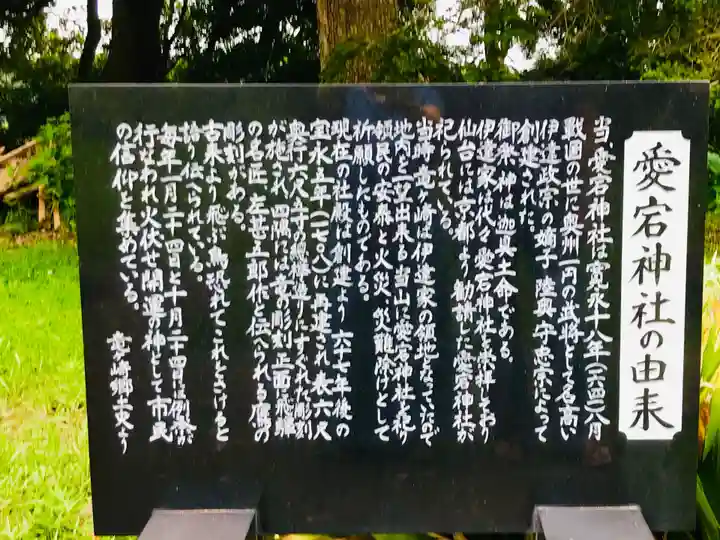 愛宕神社の由来
当、愛宕神社は寛永十八年(一六四一)八月
戦国の世に奥州一円の武将として名高い
伊達政宗の嫡子陸奥守忠宗によって
創建された。
御祭神は迦具土命である。
伊達家は代々愛宕神社を崇拝しており
仙台には京都より勧請した愛宕神社が
祀られている。
当時竜ヶ崎は伊達家の領地となっていたので
地内を一望出来る当山に愛宕神社を祀り
領民の安泰と火災、災難除けとして
祈願したものである。
現在の社殿は創建より六十七年後の
宝永五年(一七〇八)に再建され表六尺
奥行六尺五寸の総欅造りにすぐれた彫刻
が施され四隅には竜の彫刻正面に飛騨
の名匠、左甚五郎作と伝へられる鷹の
彫刻がある。
古来より飛ぶ鳥恐れてこれをさけると
語り伝へられている。
毎年一月二十四日と十月二十四日は例祭が
行なわれ火伏せ開運の神として市民
の信仰を集めている。
竜ヶ崎郷土史より